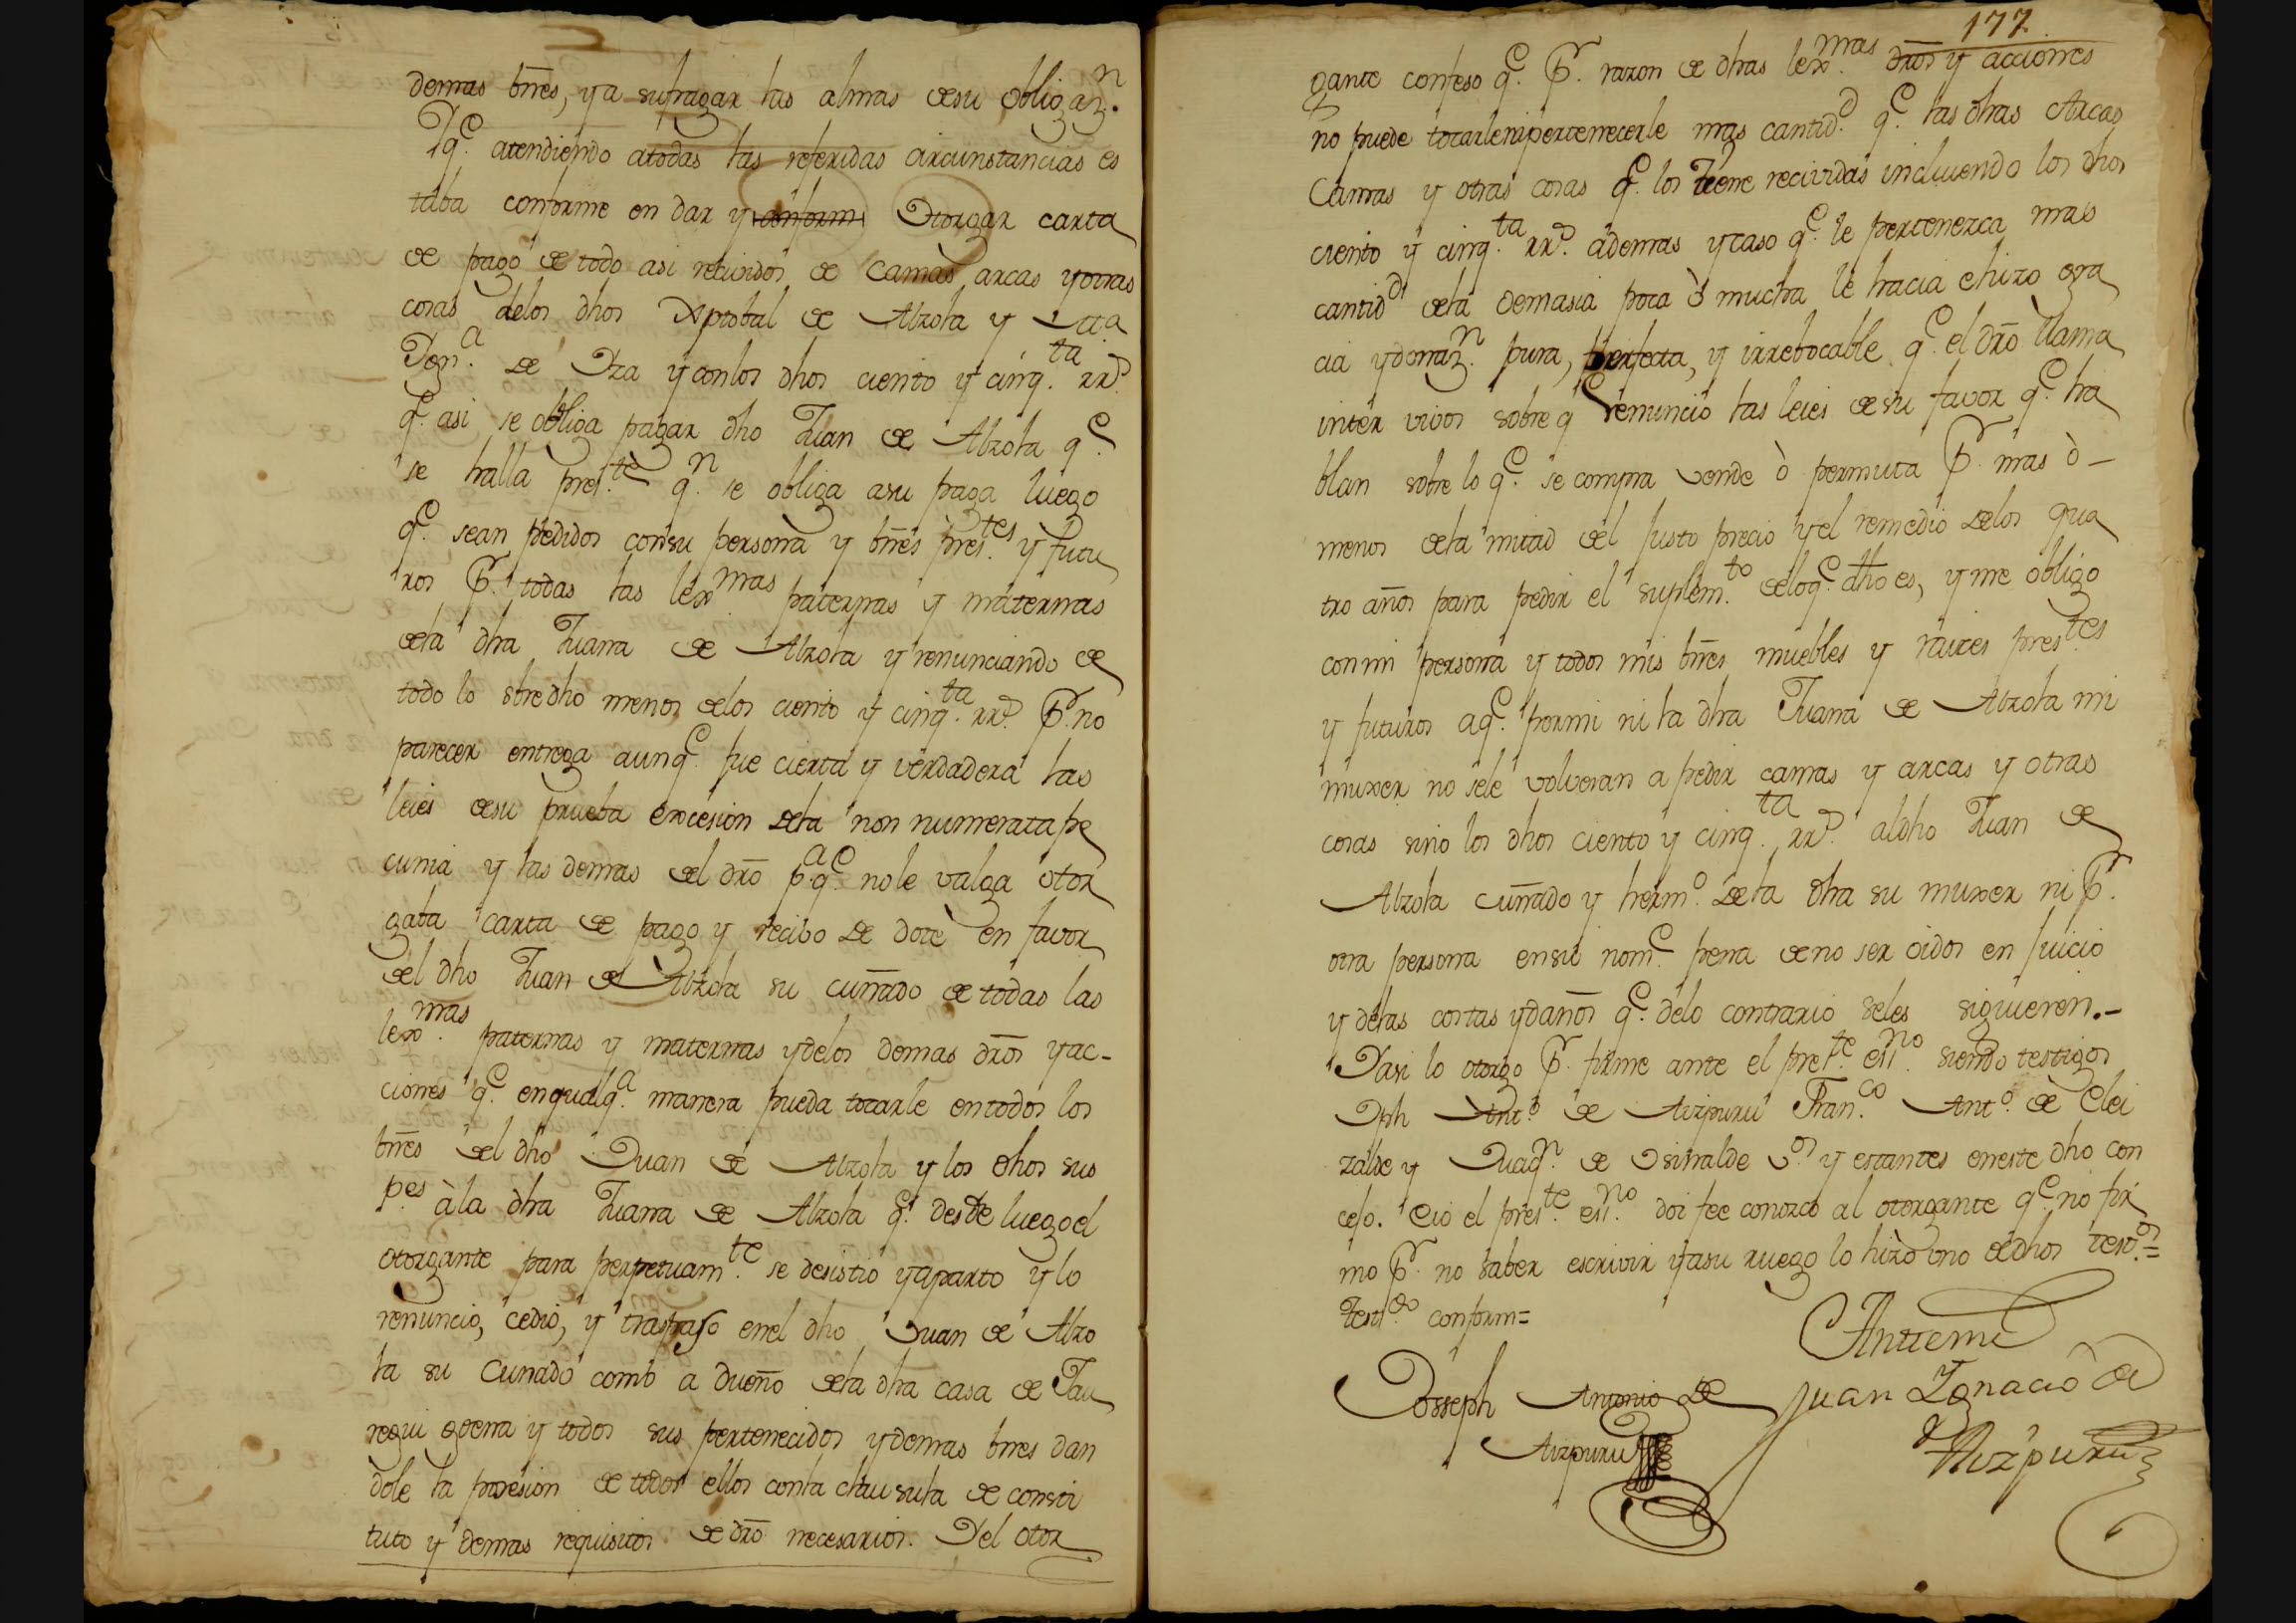 demas bn̄es, y a sufragar las almas de su obligaz.n
Y q.e atendiendo atodas las referidas circunstancias es
taba conforme en dar y conform Otorgar carta
de pago de todo asi recividos de camas arcas y otras
cosas delos dhos Xptobal de Alzola y
Ygn.a de Yza y con los dhos ciento y cinq.ta rr.s
q.e asi se obliga pagar dho Juan de Alzola q.e
se halla pres.te q.n se obliga a su paga luego
q.e sean pedidos con su persona y bn̄es pres.tes y futu
ros P.r todas las lex.mas paternas y maternas
dela dha Juana de Alzola y renunciando de
todo lo sbredho menos delos ciento y cinq.ta rr.s P.r no
parecer entrega aunq.e fue cierta y verdadera las
leies desu prueba excesion dela non numerata pe
cunia y las demas del drō p.a q.e no le valga otor
gaba carta de pago y recibo de dote en favor
del dho Juan de Alzola su cuñado de todas las
lex.mas paternas y maternas y delos demas drōs y ac-
ciones q.e en qualq.a manera pueda tocarle en todos los
bn̄es del dho Juan de Alzola y los dhos sus
p.es à la dha Juana de Alzola q.e desde luego el
otorgante para perpetuam.te se desistio y aparto y lo
renuncio, cedio, y traspaso enel dho Juan de Alzo
la su Cunado como a dueño dela dha casa de Jau
regui goena y todos sus pertenecidos y demas bnes dan
dole la posesion de todos ellos con la clausula de consti
tuto y demas requisitos de drō necesarios. Y el otor
177
gante confeso q.e P.r razon de dhas lex.mas drōs y acciones
no puede tocarle ni pertenecerle mas cantid.d q.e las dhas Arcas
Camas y otras cosas q.e los tiene recividas incluiendo los dhos
ciento y cinq.ta rr.s ademas y caso q.e le pertenezca mas
cantid.d dela demasia poca ò mucha le hacia e hizo gra
cia y donaz.n pura, perfecta, y irrebocable q.e el drō llama
inter vivos sobre q.e renunció las leies de su favor q.e ha
blan sobre lo q.e se compra vende ò permuta P.r mas ò -
menos dela mitad del justo precio y el remedio delos qua
tro años para pedir el suplem.to delo q.e dho es, y me obligo
con mi persona y todos mis bn̄es muebles y raices pres.tes
y futuros a q.e por mi ni la dha Juana de Alzola mi
muxer no sele volveran a pedir camas y arcas y otras
cosas sino los dhos ciento y cinq.ta rr.s al dho Juan de
Alzola cuñado y herm.o dela dha su muxer ni P.r
otra persona en su nom.e pena de no ser oidos en juicio
y delas costas y daños q.e delo contrario seles siguieren.-
Y asi lo otorgo P.r firme ante el pres.te ess.no siendo testigos
Jph Ant.o de Aizpuru Fran.co Ant.o de Elei
zalde y Juaq.n de Osinalde v.os y estantes en este dho con
cejo. E io el pres.te ess.no doi fee conozco al otorgante q.e no fir
mo P.r no saber escrivir y a su ruego lo hizo uno de dhos test.os=
test.do conform=
Antemi
Josseph Antonio de Juan Ygnacio de
Aizpuru Aizpuru